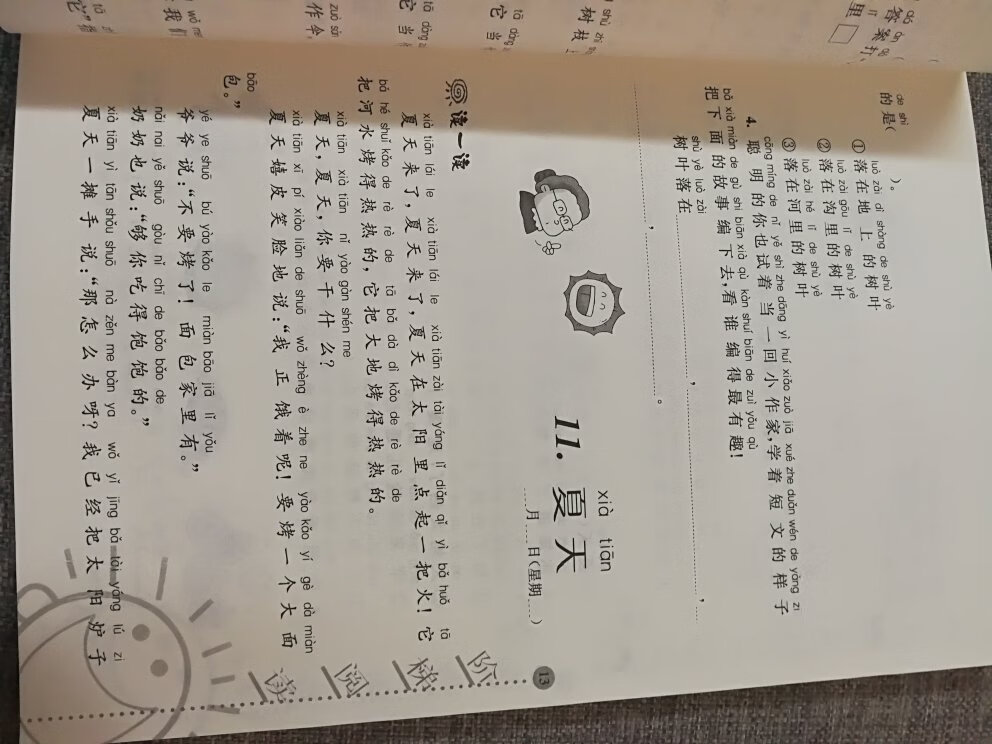 de shì
的是(      )。
luò zài dì shàng de shù yè
①落在地上的树叶
luò zài gōu lǐ de shù yè
②落在沟里的树叶
luò zài hé lǐ de shù yè
③落在河里的树叶
cōng míng de nǐ yě shì zhe dāng yì huí xiǎo zuò jiā xué zhe duǎn wén de yàng zi
4. 聪明的你也试着当一回小作家,学着短文的样子
bǎ xià miàn de gù shi biān xià qù kàn shuí biān de zuì yǒu qù
把下面的故事编下去,看谁编得最有趣!
shù yè luò zài
树叶落在 , ,
, 。
xià tiān
11. 夏天
月 日(星期 )
读一读
xià tiān lái le xià tiān lái le xià tiān zài tài yáng lǐ diǎn qǐ yì bǎ huǒ tā
夏天来了,夏天来了,夏天在太阳里点起一把火!它
bǎ hé shuǐ kǎo de rè rè de tā bǎ dà dì kǎo de rè rè de
把河水烤得热热的,它把大地烤得热热的。
xià tiān xià tiān nǐ yào gàn shén me
夏天,夏天,你要干什么?
xià tiān xī pí xiào liǎn de shuō wǒ zhèng è zhe ne yào kǎo yí gè dà miàn
夏天嬉皮笑脸地说:“我正饿着呢!要烤一个大面
bāo
包。”
yé ye shuō bú yào kǎo le miàn bāo jiā lǐ yǒu
爷爷说:“不要烤了!面包家里有。”
nǎi nai yě shuō gòu nǐ chī de bǎo bǎo de
奶奶也说:“够你吃得饱饱的。”
xià tiān yì tān shǒu shuō nà zěn me bàn ya wǒ yǐ jīng bǎ tài yáng lú zi
夏天一摊手说:“那怎么办呀?我已经把太阳炉子
阶梯阅读
13